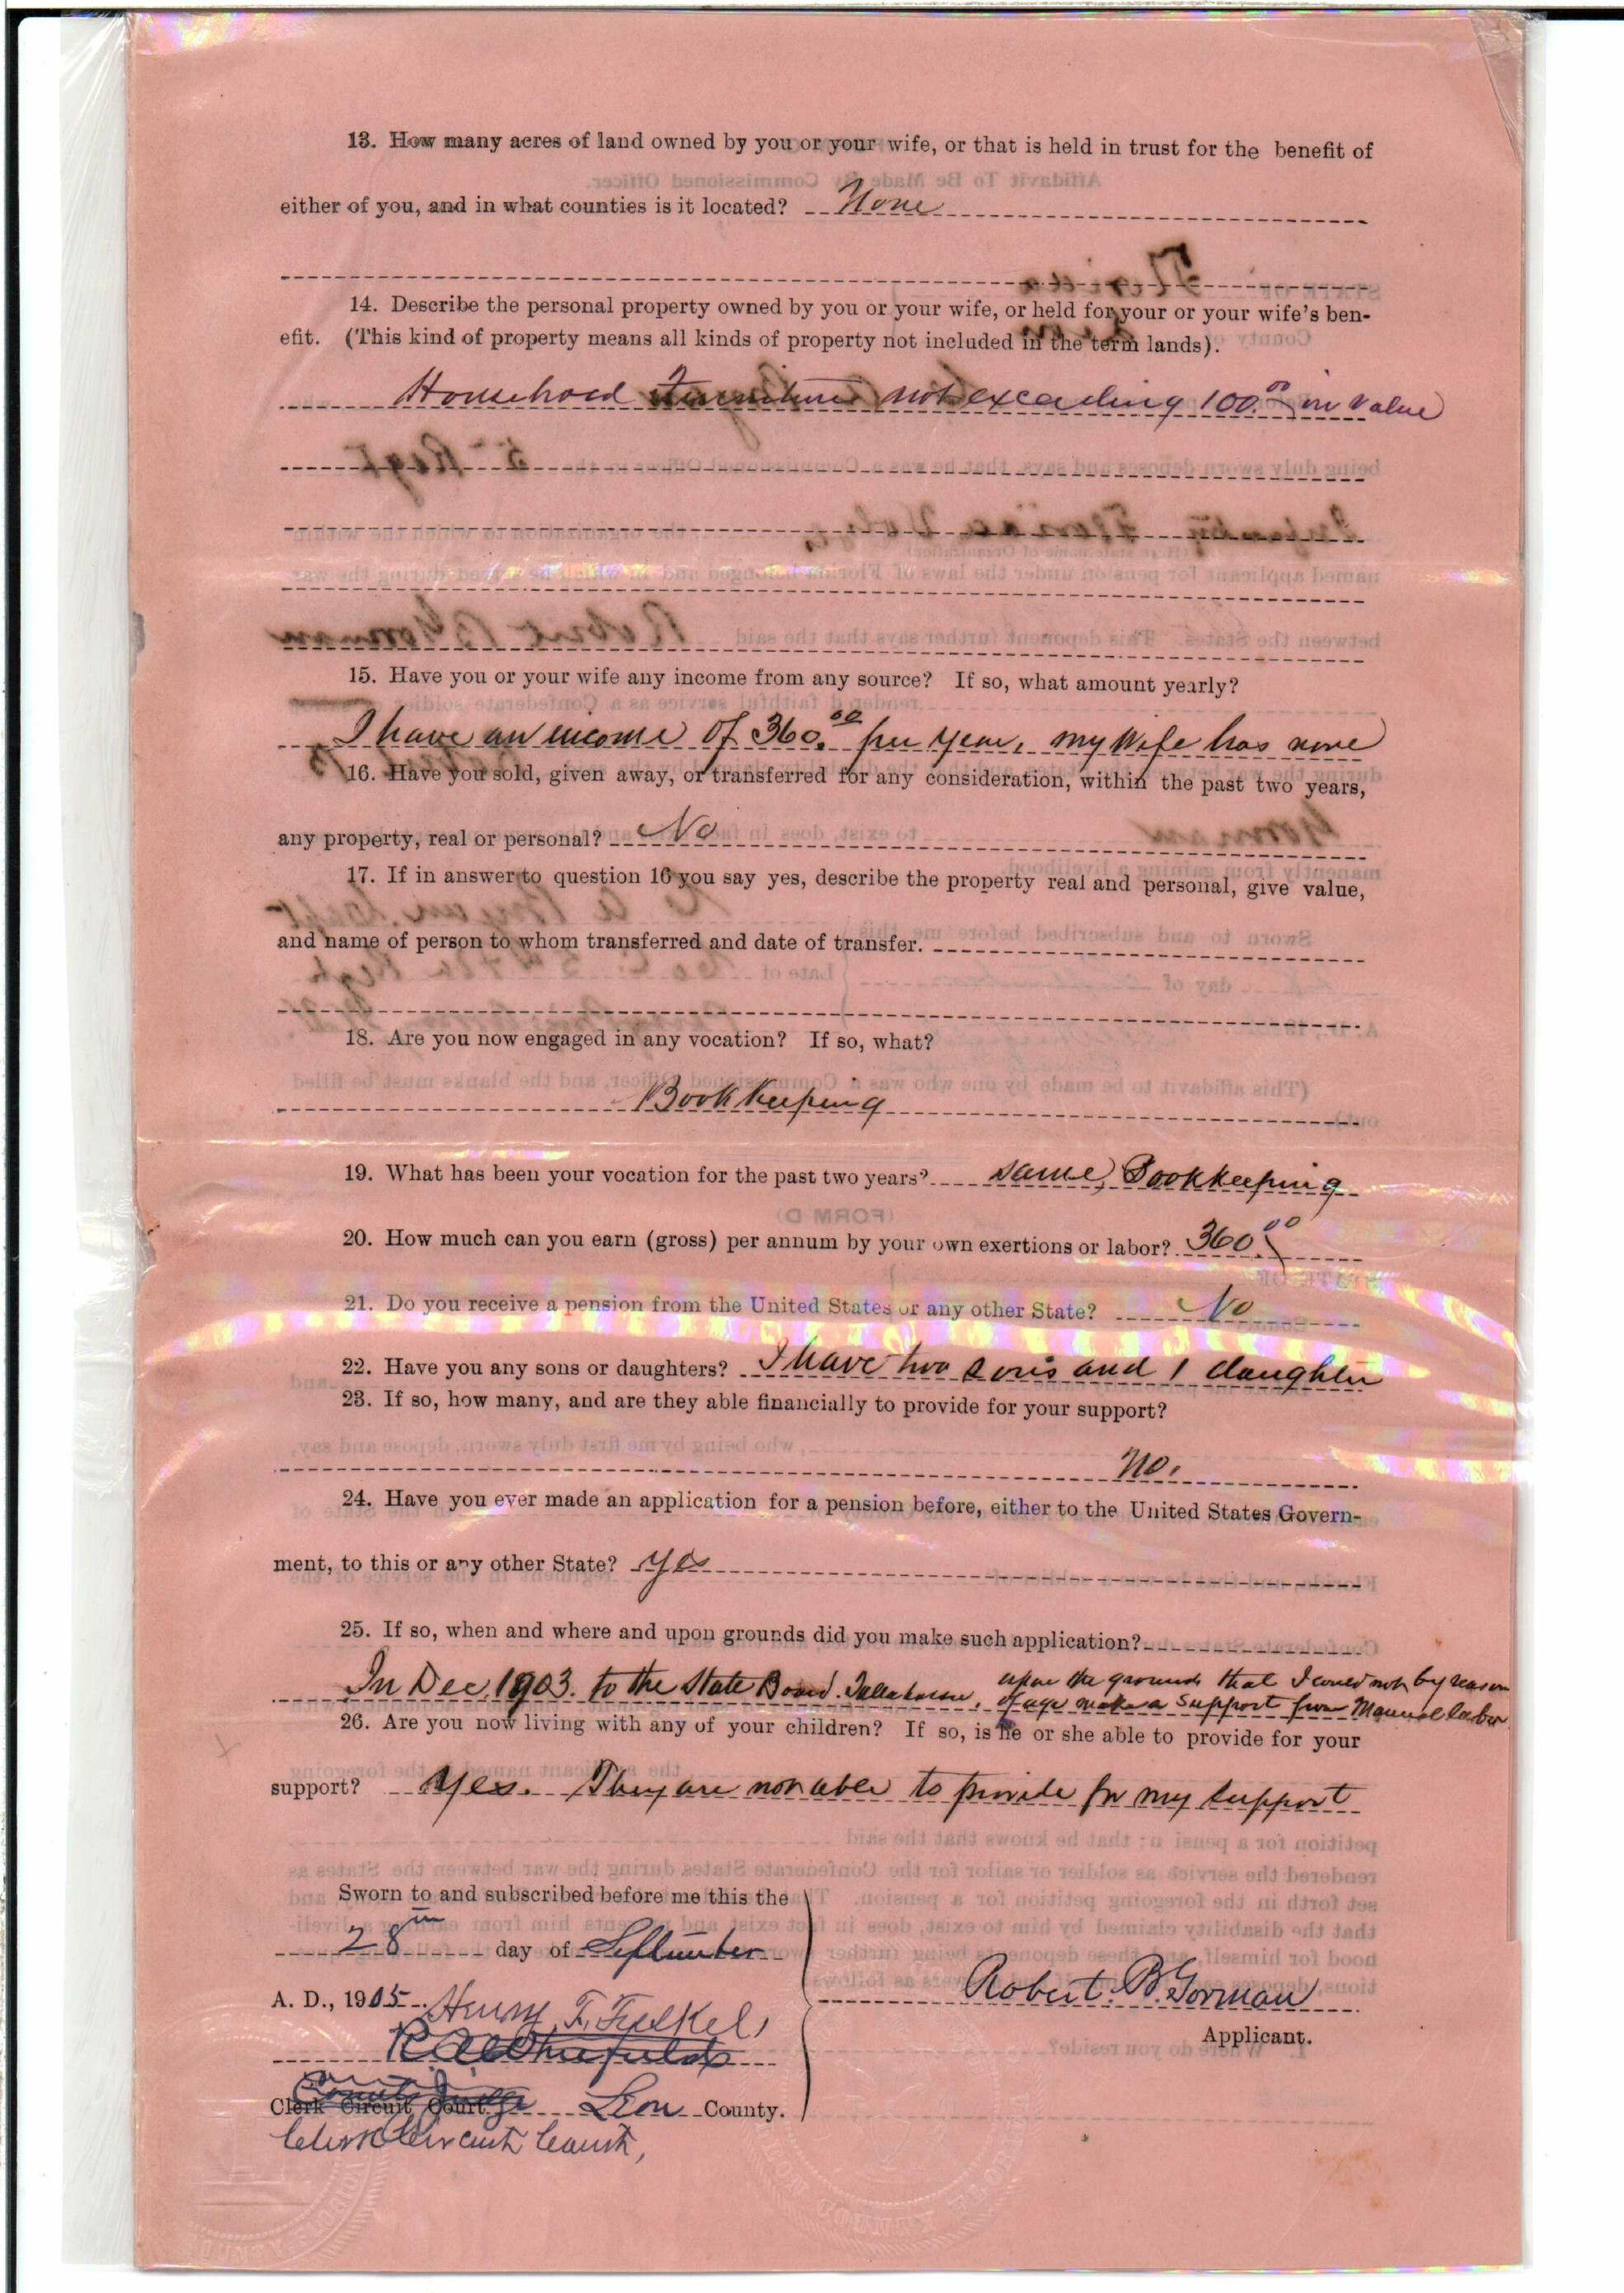 13. How many acres of land owned by you or your wife, or that is held in trust for the benefit of
either of you, and in what counties is it located? None
14. Describe the personal property owned by you or your wife, or held for your or your wife's ben-
efit. (This kind of property means all kinds of property not included in the term lands).
Househood Furniture not exceeding 100.00 in value
15. Have you or your wife any income from any source? If so, what amount yearly?
I have an income of 360.00 per year, my Wife has none
16. Have you sold, given away, or transferred for any consideration, within the past two years,
any property, real or personal? No
17. If in answer to question 16 you say yes, describe the property real and personal, give value,
and name of person to whom transferred and date of transfer.
18. Are you now engaged in any vocation? If so, what?
Bookkeeping
19. What has been your vocation for the past two years? same, Bookkeeping
20. How much can you earn (gross) per annum by your own exertions or labor? 360.00
21. Do you receive a pension from the United States or any other State? No
22. Have you any sons or daughters? I have two sons and 1 daughter
23. If so, how many, and are they able financially to provide for your support?
No.
24. Have you ever made an application for a pension before, either to the United States Govern-
ment, to this or any other State? yes
25. If so, when and where and upon grounds did you make such application?
In Dec. 1903. to the State Board. Tallahassee, upon the grounds that I could not by reason
of age make a support from Manual labor
26. Are you now living with any of your children? If so, is he or she able to provide for your
support? Yes. They are not able to provide for my support
Sworn to and subscribed before me this the
28th day of September
A. D., 1905 Henry T. Felkel,
Robert. B. Gorman
Applicant.
Clerk Circuit Court Leon County.
Clerk Circuit Court,